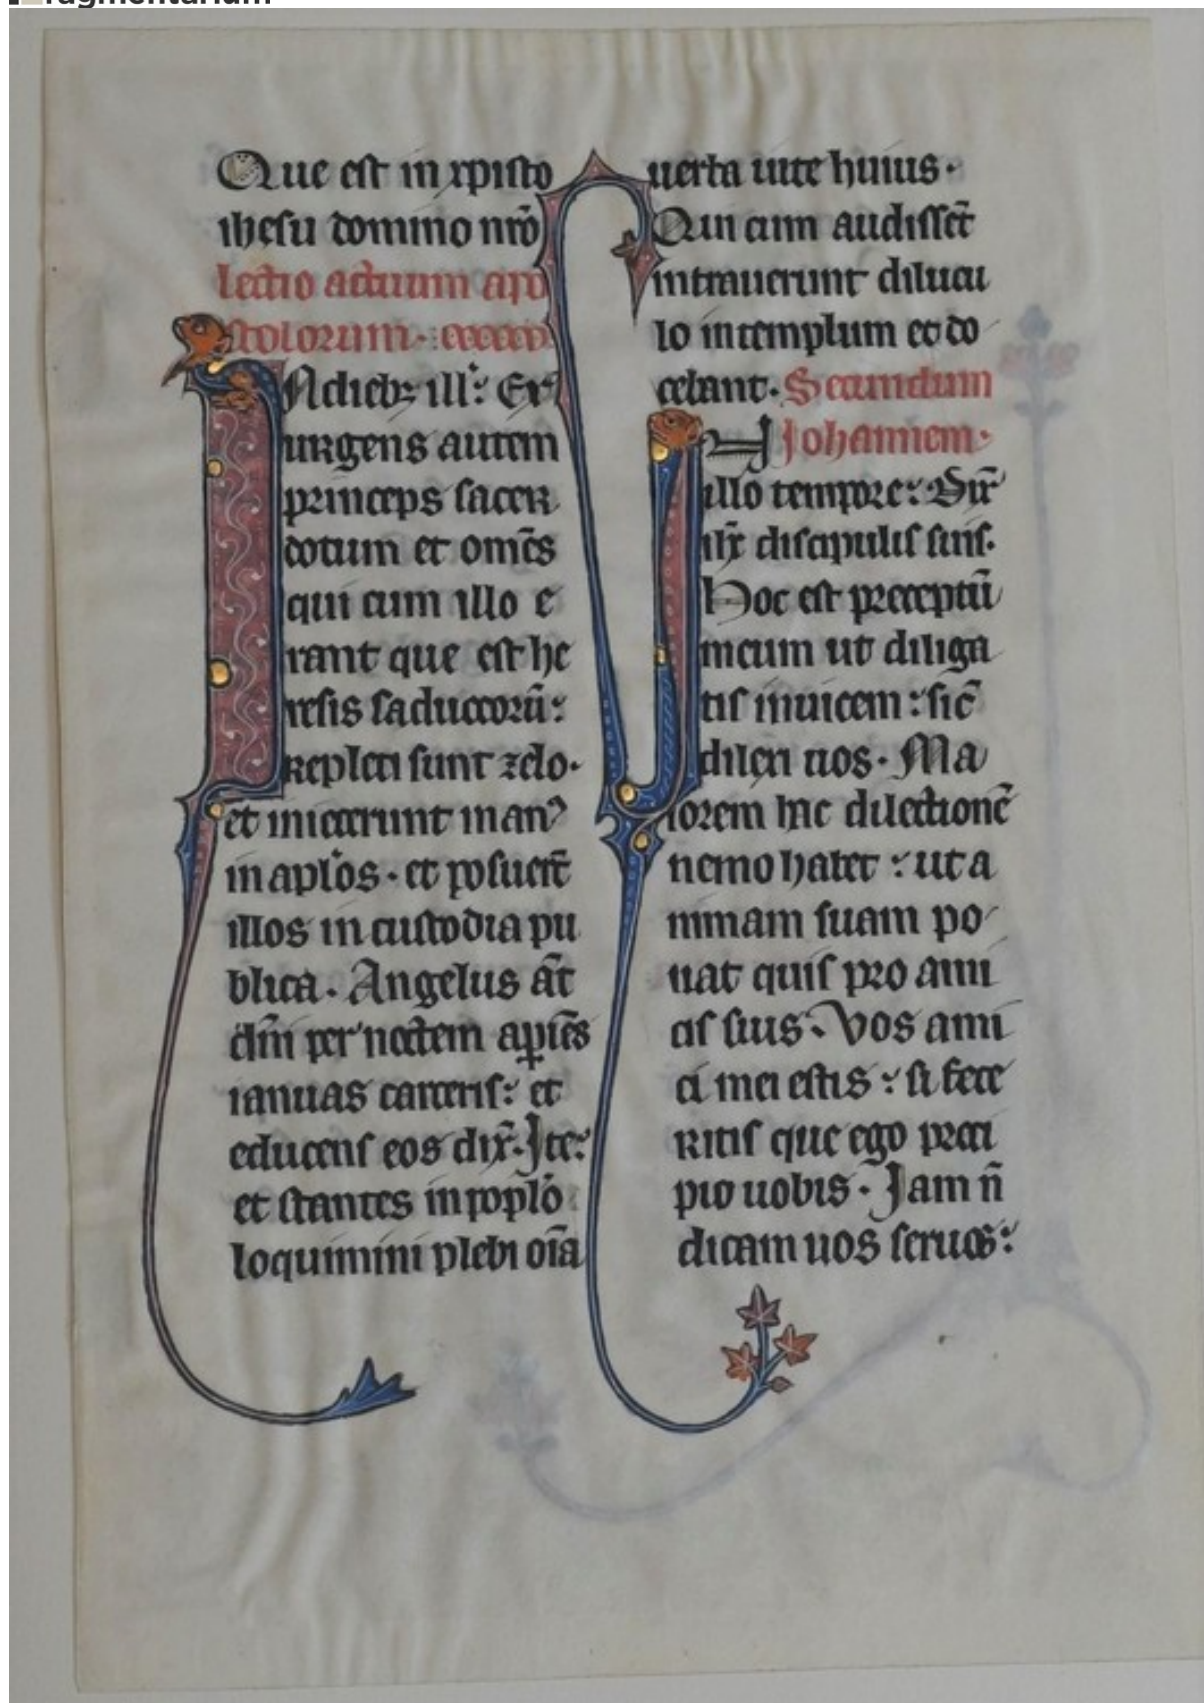 ragmentarium
Que est in xpisto
ihesu domino nr̄o
lectio actuum apo
stolorum.
N dieb; ill': Ex
urgens autem
princeps sacer
dotum et om̄s
qui cum illo e
rant que est he
resis saduceorū:
repleti sunt zelo.
et iniecerunt man9
in apl'os. et posuer̄t
illos in custodia pu
blica. Angelus āt
dn̄i per noctem aꝑiēs
ianuas carceris: et
educens eos dix̄. Ite:
et stantes in
loquimini plebi oīa
uerba uite huius.
Qui cum audissēt
intrauerunt dilucu
lo in templum et do
cebant. Secundum
N Johannem.
illo tempore: Dix̄
ih̄s discipulis suis.
Hoc est preceptū
meum ut diliga
tis inuicem: sic̄
dilexi uos. Ma
iorem hac dilectionē
nemo habet: ut a
nimam suam po
nat quis pro ami
cis suis. Vos ami
ci mei estis: si fece
ritis que ego preci
pio uobis. Jam n̄
dicam uos seruos: